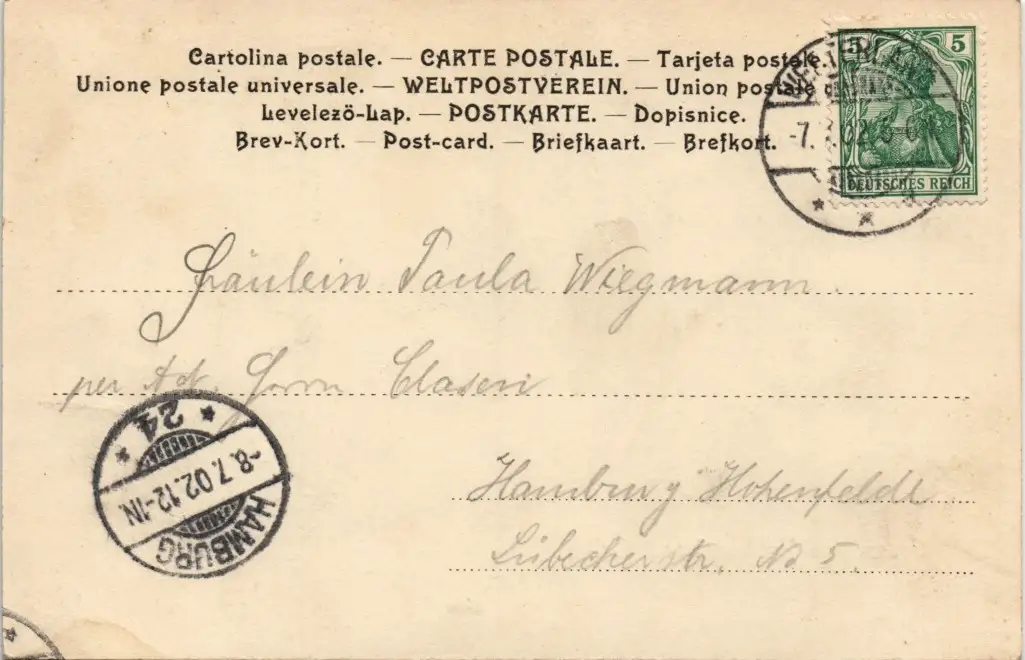 Cartolina postale. — CARTE POSTALE. — Tarjeta postale.
Unione postale universale. — WELTPOSTVEREIN. — Union postale
Levelező-Lap. — POSTKARTE. — Dopisnice.
Brev-Kort. — Post-card. — Briefkaart. — Brefkort.
5 5
DEUTSCHES REICH
WESTERLAND
-7.7.02.
Fräulein Paula Wiegmann.
per Ad. Herrn Clasen
Hamburg Hohenfelde
Lübeckerstr. No 5.
24
-8.7.02.12-1N
HAMBURG